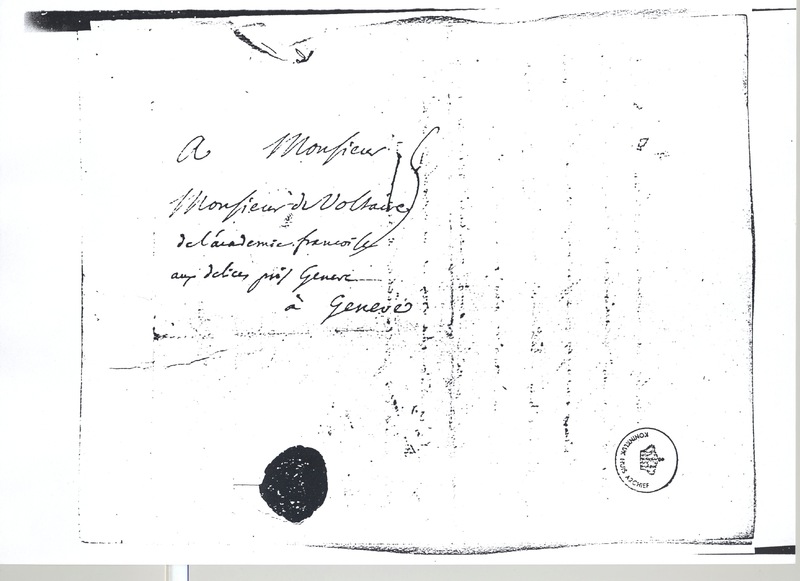 A Monsieur
Monsieur de Voltaire
de l'academie francoise
aux delices près Geneve
à Geneve
KONINKLIJK HUIS ARCHIEF